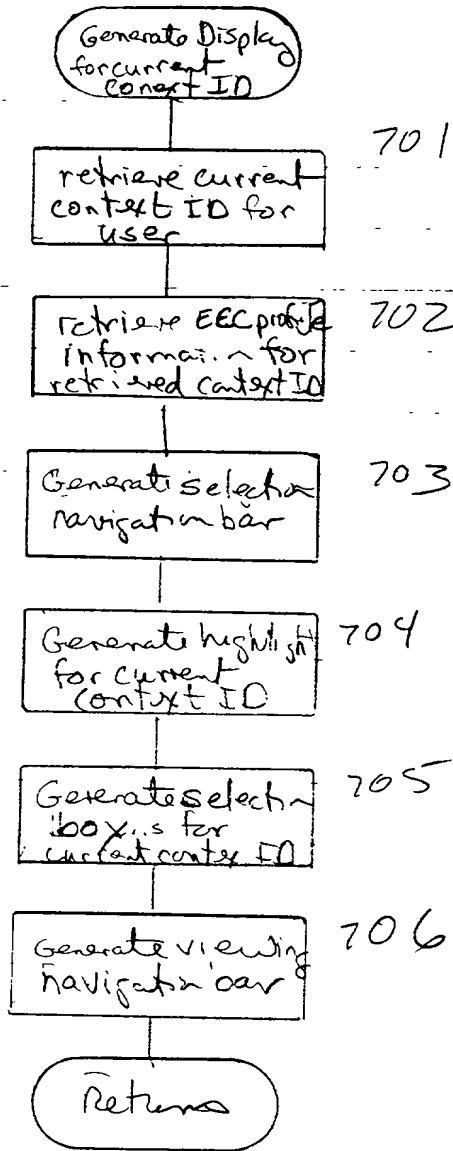 Generate Display
for current
conext ID
701
retrieve current
context ID for
user
702
retrieve EEC profile
informa..n for
retrieved context ID
703
Generate selection
navigation bar
704
Generate highlight
for current
context ID
705
Generate selection
box..s for
current contex ID
706
Generate viewing
navigation bar
Return